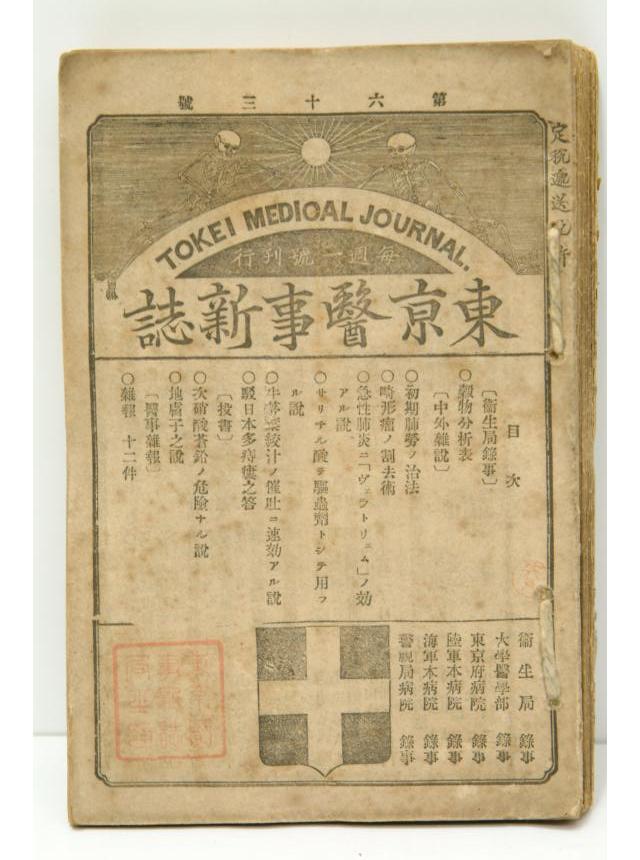 第六十三號
TOKEI MEDICAL JOURNAL.
每週一號刊行
東亰醫事新誌
定稅遞送
目次
〔衞生局錄事〕
○穀物分析表
〔中外雜說〕
○初期肺勞ノ治法
○畸形瘤ノ割去術
○急性肺炎ニ「ヴェラトリュム」ノ効
アル說
○サリチル酸ヲ驅蟲劑トシテ用フ
ル說
○牛蒡葉絞汁ノ催吐ニ速効アル說
○駁日本多痔瘻之答
〔投書〕
○次硝酸蒼鉛ノ危險ナル說
○地膚子之說
〔醫事雜報〕
○雜報 十二件
衞生局 錄事
大學醫學部 錄事
東京府病院 錄事
陸軍本病院 錄事
海軍本病院 錄事
警視局病院 錄事